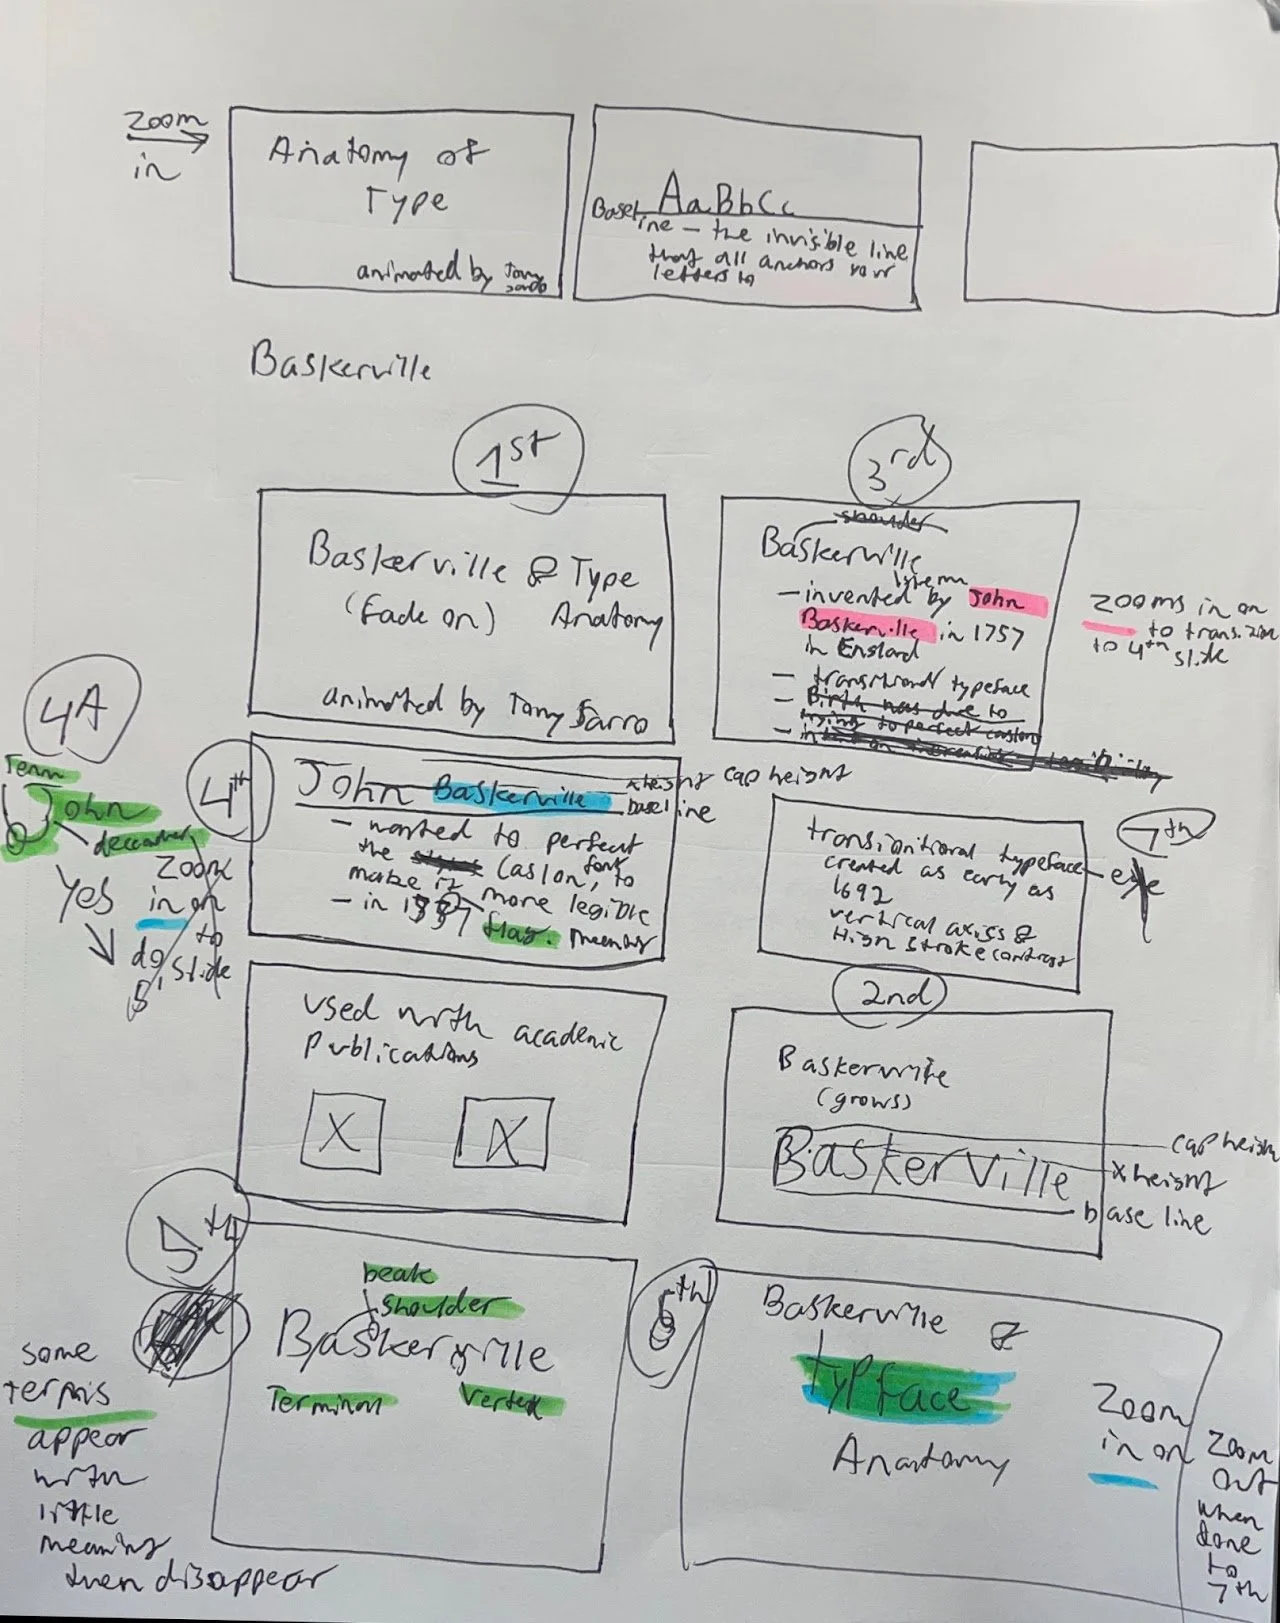 Zoom
in
Anatomy of
Type
animated by Tony
Sarro
AaBbCc
Baseline – the invisible line
that all anchors your
letters to
Baskerville
1st
Baskerville & Type
(fade on) Anatomy
animated by Tony Sarro
3rd
shoulder
Baskerville
– invented by John
Baskerville in 1757
in England
– transitional typeface
– Birth was due to
trying to perfect caslon
Zooms in on
to transition
to 4th
slide
4A
Term
John
Yes
4th
John Baskerville
xheight cap height
baseline
– wanted to perfect
the Caslon, font to
make it more legible
– in
meaning
Zoom
in on
to
do
slide
7th
transionitional typeface – eye
created as early as
1692
vertical axiss &
High stroke contrast
used with academic
publications
X X
2nd
Baskerville
(grows)
Baskerville
cap height
x height
base line
5th
beak
shoulder
Baskerville
Terminal Vertex
some
terms
appear
with
little
meaning
then disappear
6th
Baskerville &
typface
Anatomy
Zoom
in on
Zoom
out
when
done
to
7th